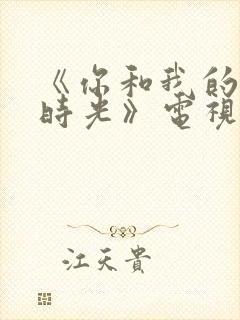 《你和我的
時光》電視
江天貴